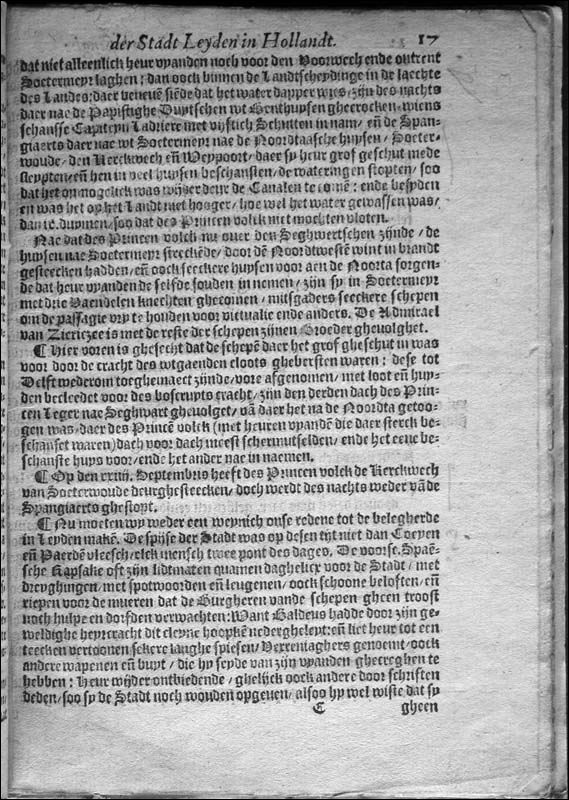 der Stadt Leyden in Hollandt. 17
dat niet alleenlick heur vyanden noch voor den Voorwech ende ontrent
Soetermeyr laghen; dan oock binnen de Landtscheydinge in de laechte
des Landes: daer beneuē siēde dat het water dapper wies, zijn des nachts
daer nae de Papistighe Duytschen wt Benthuysen gheerocken, wiens
schansse Capiteyn Ladriere met vijftich Schutten in nam, eñ de Span-
giaerts daer nae wt Soetermeyr nae de Noortaasche huysen, Soeter-
woude, den Kerckwech eñ Weypoort, daer sy heur grof geschut mede
sleypten, eñ hen in veel huysen beschansten, de wateringen stopten, soo
dat het onmogelick was wijder deur de Canalen te comē: ende besyden
en was het op het Landt niet hooger, hoe wel het water gewassen was,
dan ix. duymen, soo dat des Princen volck niet mochten vloten.
Nae dat des Princen volck nu ouer den Seghwertschen zijnde, de
huysen nae Soetermeyr streckēde, door dē Noordtwestē wint in brandt
gesteecken hadden, eñ oock seeckere huysen voor aen de Noorta sorgen-
de dat heur vyanden de selfde souden in nemen, zijn sy in Soetermeyr
met drie Vaendelen knechten ghecomen, mitsgaders seeckere schepen
om de passagie vry te houden voor victualie ende anders. De Admirael
van Ziericzee is met de reste der schepen zijnen Broeder gheuolghet.
¶ Hier voren is ghesecht dat de schepē daer het grof gheschut in was
voor door de cracht des wtgaenden cloots ghebersten waren: dese tot
Delft wederom toeghemaect zijnde, vore afgenomen, met loot eñ huy-
den becleedet voor des boscruyts cracht, zijn den derden dach des Prin-
cen Leger nae Seghwart gheuolget, vā daer het na de Noordta getoo-
gen was, daer des Princē volck (met heuren vyandē die daer sterck be-
schanset waren) dach voor dach meest schermutselden, ende het eene be-
schanste huys voor, ende het ander nae in naemen.
¶ Op den xxiij. Septembris heeft des Princen volck de Kerckwech
van Soeterwoude deurghesteecken, doch werdt des nachts weder vā de
Spangiaerts ghestopt.
¶ Nu moeten wy weder een weynich onse redene tot de belegherde
in Leyden makē. De spijse der Stadt was op desen tijt niet dan Coeyen
eñ Paerdē vleesch, elck mensch twee pont des dages. De voorsz. Spaē-
sche Kapsake oft zijn lidtmaten quamen daghelicx voor de Stadt, met
dreyghingen, met spotwoorden eñ leugenen, oock schoone beloften, eñ
riepen voor de mueren dat de Burgheren vande schepen gheen troost
noch hulpe en dorfden verwachten: Want Baldeus hadde door zijn ge-
weldighe heyrcracht dit cleyne hoopkē nederghelept: eñ liet heur tot een
teecken vertoonen sekere langhe spiesen, Verreniaghers genoemt, oock
andere wapenen eñ buyt, die hy seyde van zijn vyanden ghecreghen te
hebben: Heur wijder ontbiedende, ghelijck oock andere door schriften
deden, soo sy de Stadt noch wouden opgeuen, alsoo hy wel wiste dat sy
C gheen